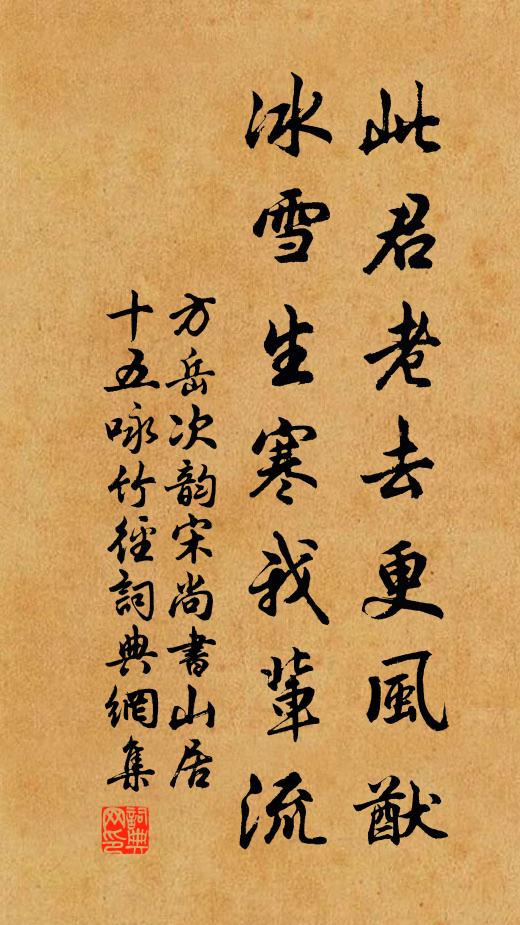 此君老去更風猷
冰雪生寒我輩流
方岳次韵宋尚書山居
十五咏竹徑詞典網集
詞典网印